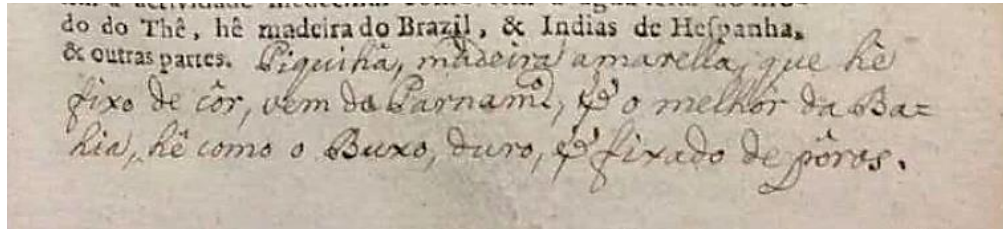 do do Thê, hê madeira do Brazil, & Indias de Hespanha,
& outras partes. Piquihâ, madeira amarella, que hê
fixo de côr, vem de Parnam.co, & o melhôr da Ba=
hia, hê como o Buxo, duro, & fixado de pôros.